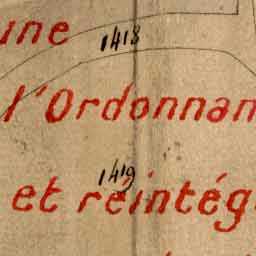 une
1418
l'Ordonnan
1419
et réintég